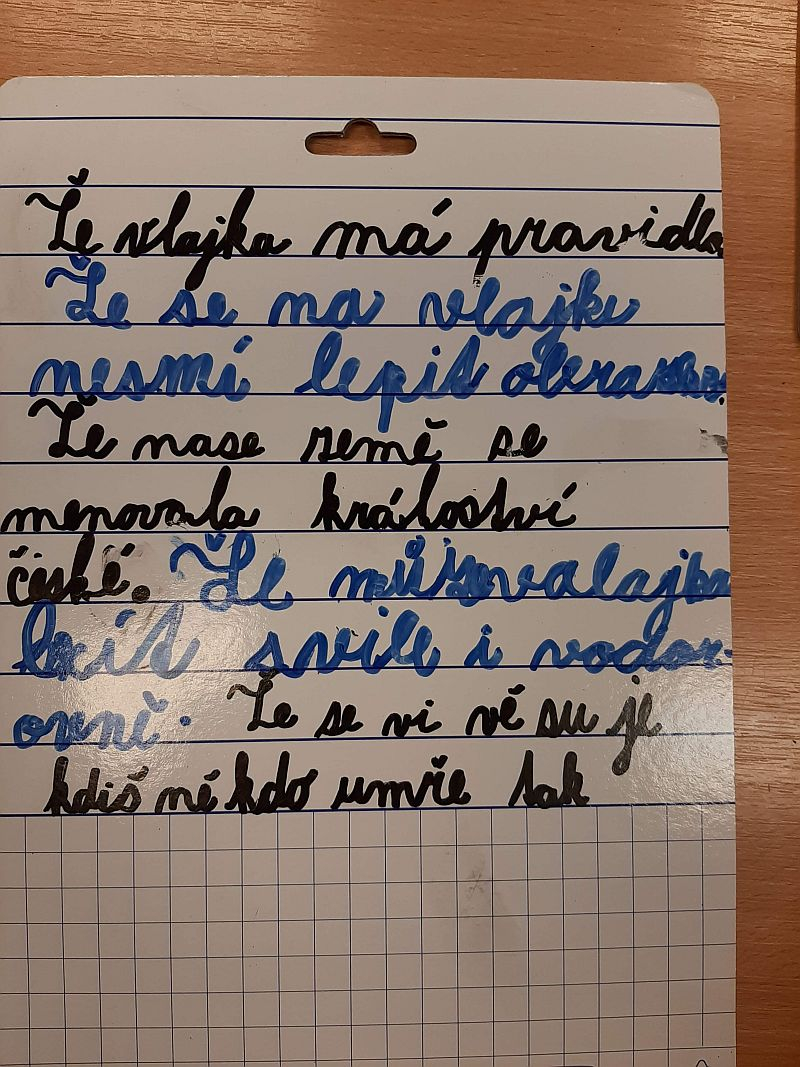 Že vlajka má pravidla
Že se na vlajku
nesmí lepit
Že nase země se
menovala králoství
české. Že
bít svile i vodor-
ovně. Že se vi vě su je
kdiš ně kdo umře tak